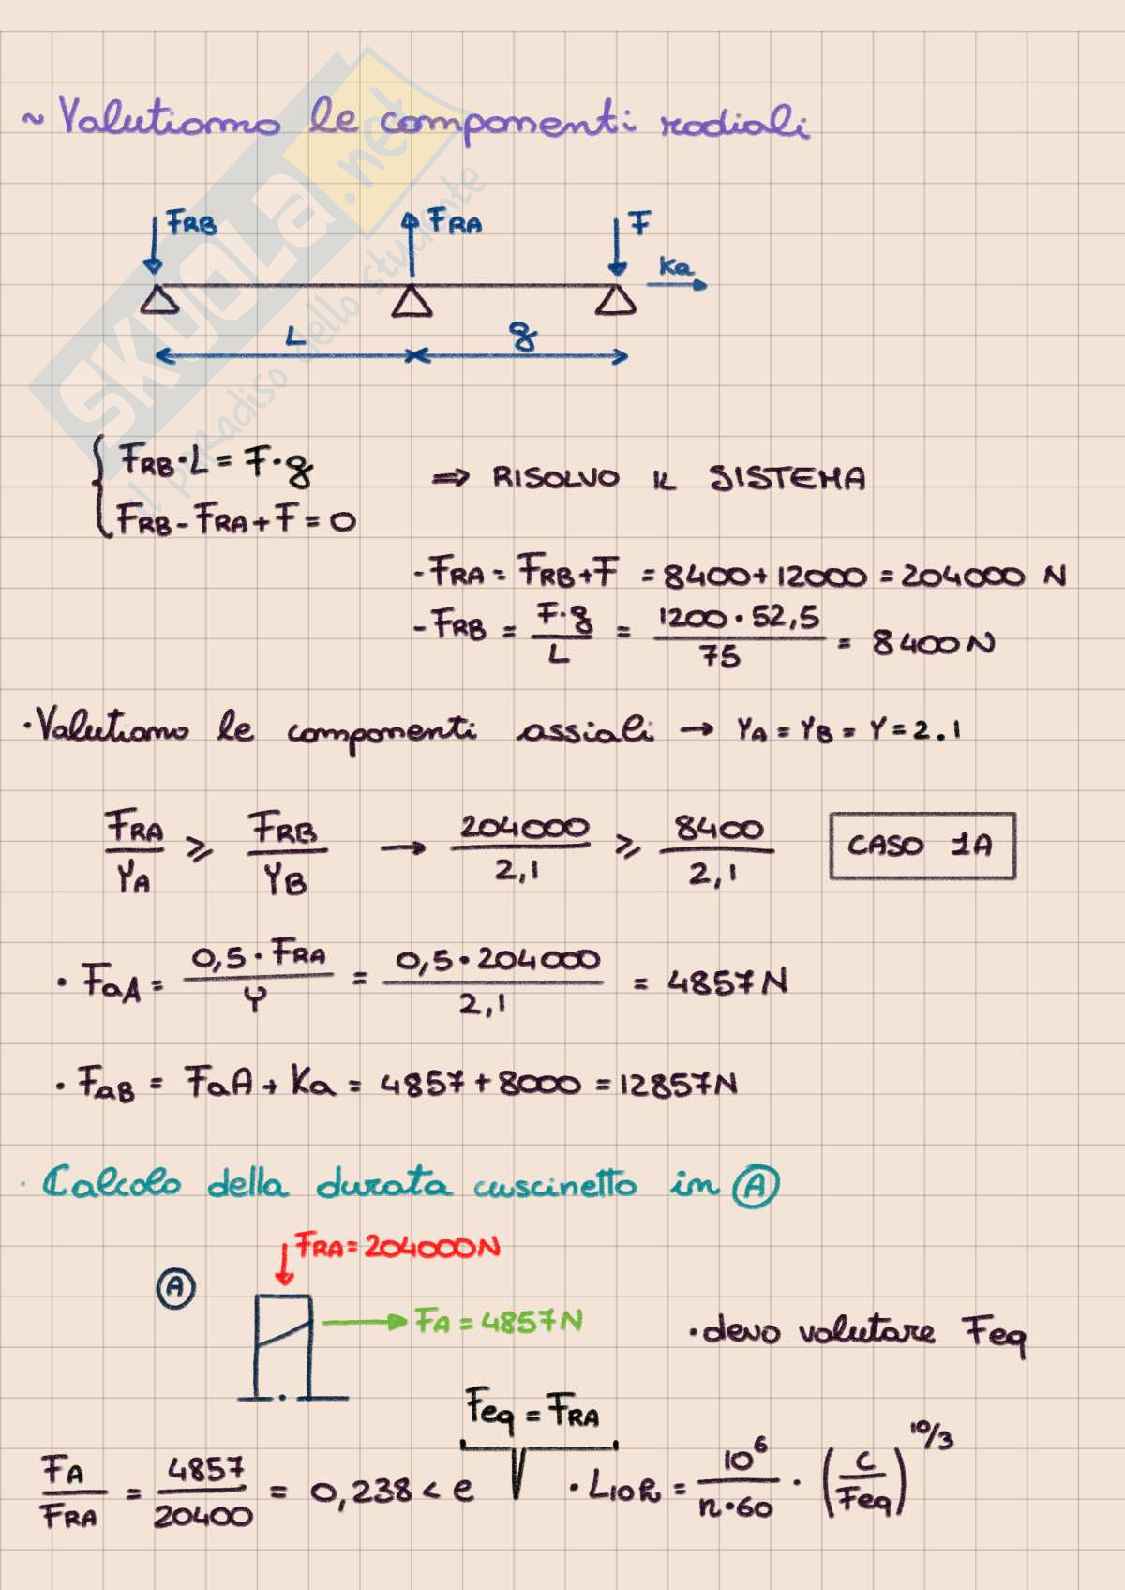 ~ Valutiamo le componenti radiali
FRB FRA F
Ka
L g
FRB · L = F · g ⇒ RISOLVO IL SISTEMA
FRB - FRA + F = 0
- FRA = FRB + F = 8400 + 12000 = 204000 N
- FRB = F · g / L = 1200 · 52,5 / 75 = 8400 N
· Valutiamo le componenti assiali → YA = YB = Y = 2.1
FRA / YA ≥ FRB / YB → 204000 / 2,1 ≥ 8400 / 2,1 CASO 1A
· FaA = 0,5 · FRA / Y = 0,5 · 204000 / 2,1 = 4857 N
· FaB = FaA + Ka = 4857 + 8000 = 12857 N
· Calcolo della durata cuscinetto in A
FRA = 204000 N
A
FA = 4857 N
· devo valutare Feq
Feq = FRA
FA / FRA = 4857 / 20400 = 0,238 < e · L10h = 10^6 / n · 60 · (C / Feq)^10/3
SKUOLA.net
il paradiso dello studente